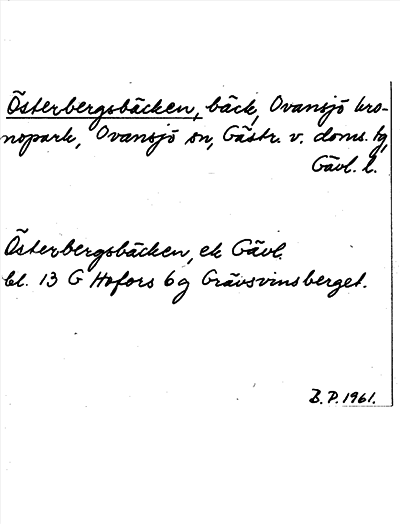 Österbergsbäcken, bäck, Ovansjö kro-
nopark, Ovansjö sn, Gästr. v. doms. tg,
Gävl. l.
Österbergsbäcken, ek Gävl.
bl. 13 G Hofors 6g Grävsvinsberget.
B. P. 1961.